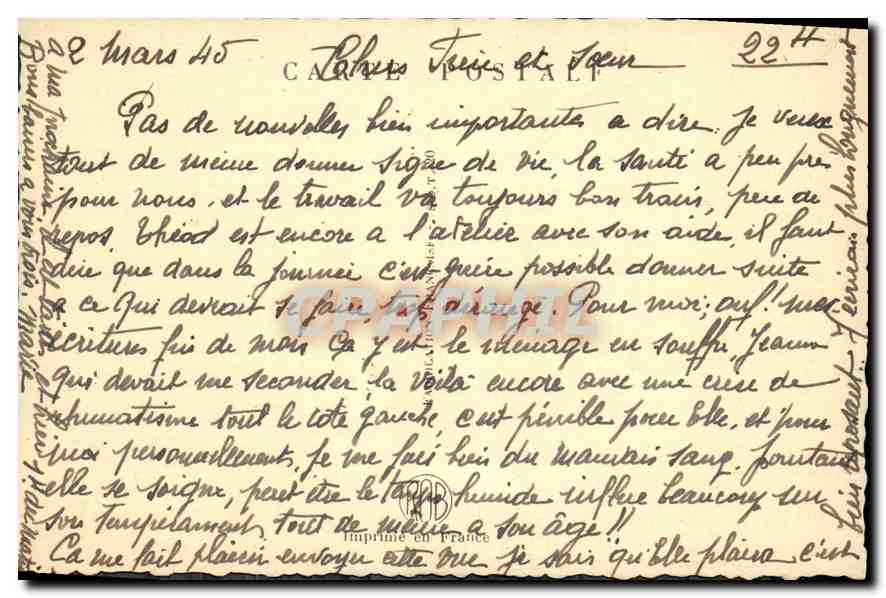 2 Mars 45
22 H
Chers Frère et Sœur
CARTE POSTALE
Pas de nouvelles bien importantes a dire. Je veux
tout de même donner signe de vie, la santé a peu près
pour nous, et le travail va toujours bon train, peu de
repos, Théod est encore a l'atelier avec son aide, il faut
dire que dans la journée c'est guère possible donner suite
a ce qui devrait se faire, trop dérangé. Pour moi, ouf! mes
écritures fin de mois Ça y est le ménage en souffre, Jeanne
qui devait me seconder, la voilà encore avec une crise de
rhumatisme tout le côté gauche, c'est pénible pour Elle, et pour
moi personnellement, je me fais bien du mauvais sang, pourtant
elle se soigne, peut être le temps humide influe beaucoup sur
son tempérament, tout de même a son âge!!
Imprimé en France
Ça me fait plaisir envoyer cette vue je sais qu'Elle plaira c'est
bien reproduit. J'écrirais plus longuement
a ma marraine et
Bons baisers a vous trois. Maria
CPAPHIL